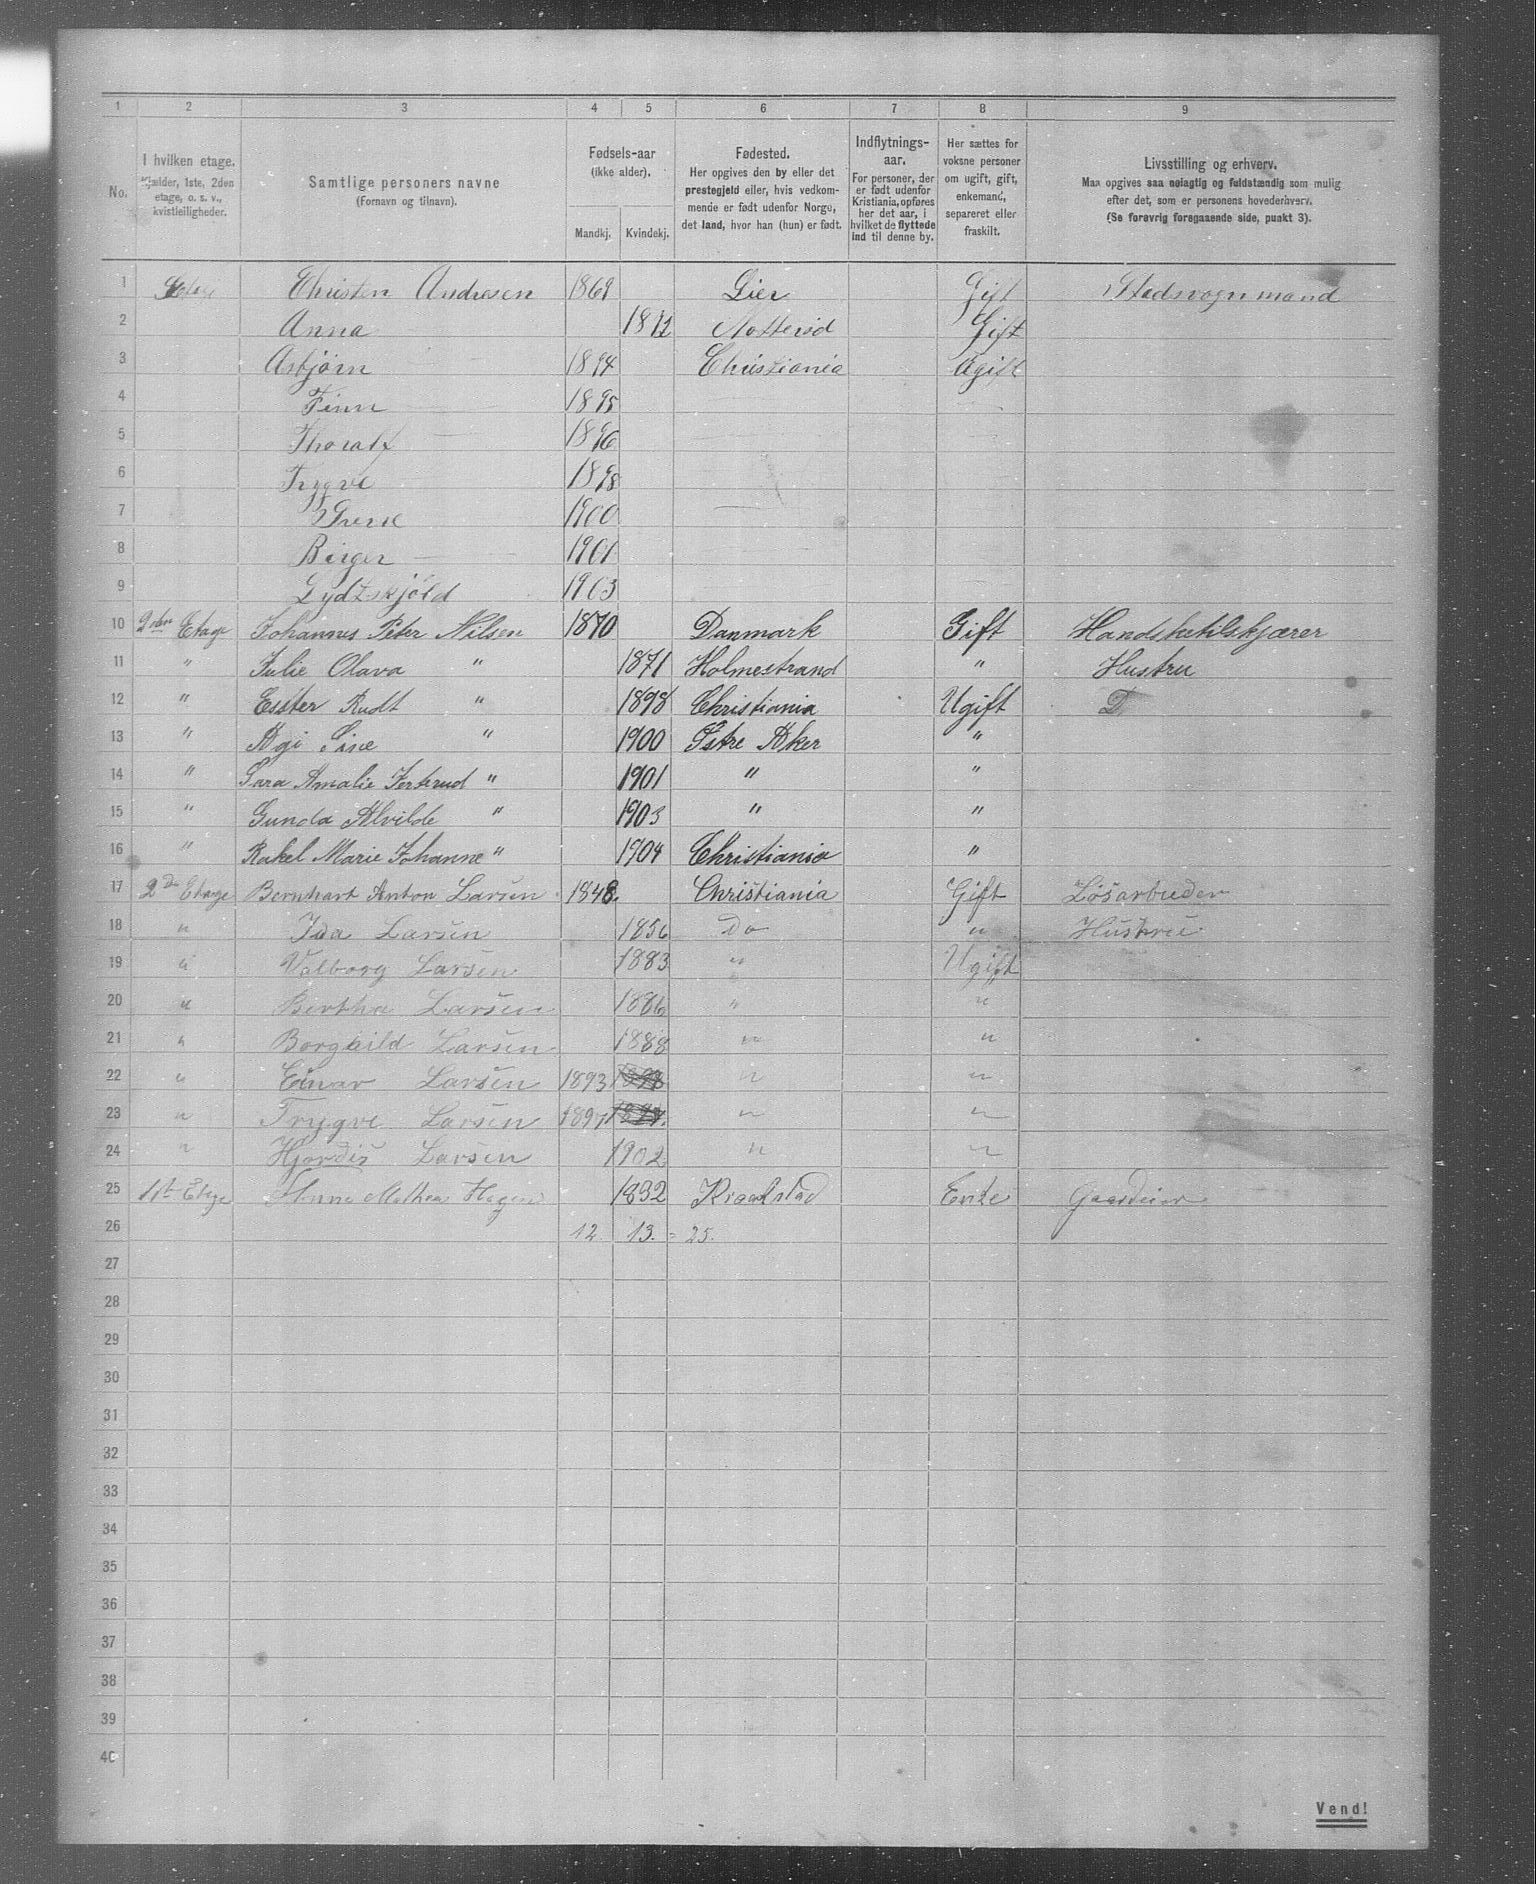 1 2 3 4 5 6 7 8 9
No.
I hvilken etage.
Kjælder, 1ste, 2den
etage, o. s. v.,
kvistleiligheder.
Samtlige personers navne
(Fornavn og tilnavn).
Fødsels-aar
(ikke alder).
Mandkj. Kvindekj.
Fødested.
Her opgives den by eller det
prestegjeld eller, hvis vedkom-
mende er født udenfor Norge,
det land, hvor han (hun) er født.
Indflytnings-
aar.
For personer, der
er født udenfor
Kristiania, opføres
her det aar, i
hvilket de flyttede
ind til denne by.
Her sættes for
voksne personer
om ugift, gift,
enkemand,
separeret eller
fraskilt.
Livsstilling og erhverv.
Maa opgives saa nøiagtig og fuldstændig som mulig
efter det, som er personens hovederhverv.
(Se forøvrig foregaaende side, punkt 3).
1 Etage Christen Andresen 1869 Lier Gift Stadsvognmand
2 Anna Notterød Gift
3 Asbjørn 1894 Christiania Ugift
4 Finn 1895
5 Thoralf 1896
6 Trygve 1898
7 1900
8 Birger 1901
9 1903
10 2den Etage Johannes Peter Nilsen 1870 Danmark Gift Handsketilskjærer
11 " Julie Olava " 1871 Holmestrand " Hustru
12 " Esster Rudt " 1898 Christiania Ugift D
13 " Agi Sine " 1900 Østre Aker "
14 " Sara Amalie Jertrud " 1901 " "
15 " Gunda Alvilde " 1903 " "
16 " Rakel Marie Johanne " 1904 Christiania "
17 2den Etage Bernhart Anton Larsen 1848. Christiania Gift Løsarbeider
18 " Ida Larsen 1856 Do " Hustru
19 " Valborg Larsen 1883 " Ugift
20 " Bertha Larsen 1886 " "
21 " Borghild Larsen 1888 " "
22 " Einar Larsen 1893 " "
23 " Trygve Larsen 1897 " "
24 " Hjørdis Larsen 1902 " "
25 1ste Etage Anna Mathea Hagen 1832 Kraakstad Enke
26 12. 13. = 25.
27
28
29
30
31
32
33
34
35
36
37
38
39
40
Vend!